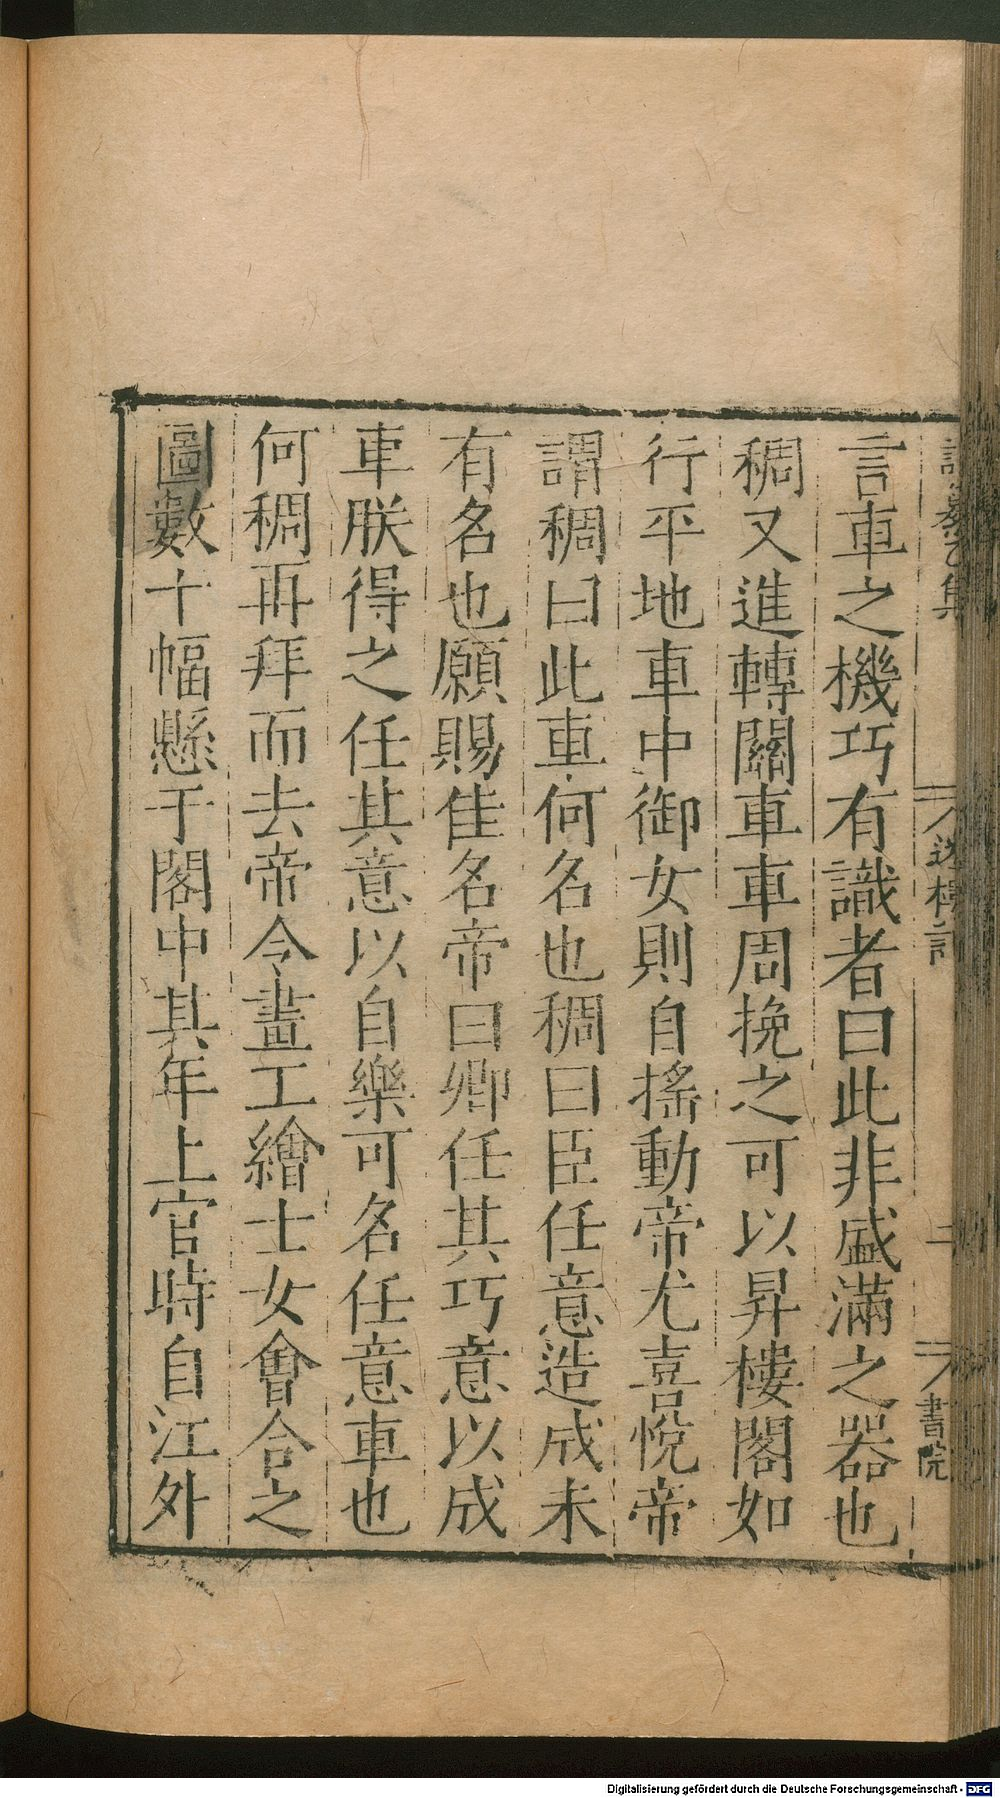 言車之機巧有識者曰此非盛滿之器也
稠又進轉關車車周挽之可以昇樓閣如
行平地車中御女則自搖動帝尤喜悅帝
謂稠曰此車何名也稠曰臣任意造成未
有名也願賜佳名帝曰卿任其巧意以成
車朕得之任其意以自樂可名任意車也
何稠再拜而去帝令畫工繪士女會合之
圖數十幅懸于閣中其年上官時自江外
迷樓記
二
書院
Digitalisierung gefördert durch die Deutsche Forschungsgemeinschaft - DFG